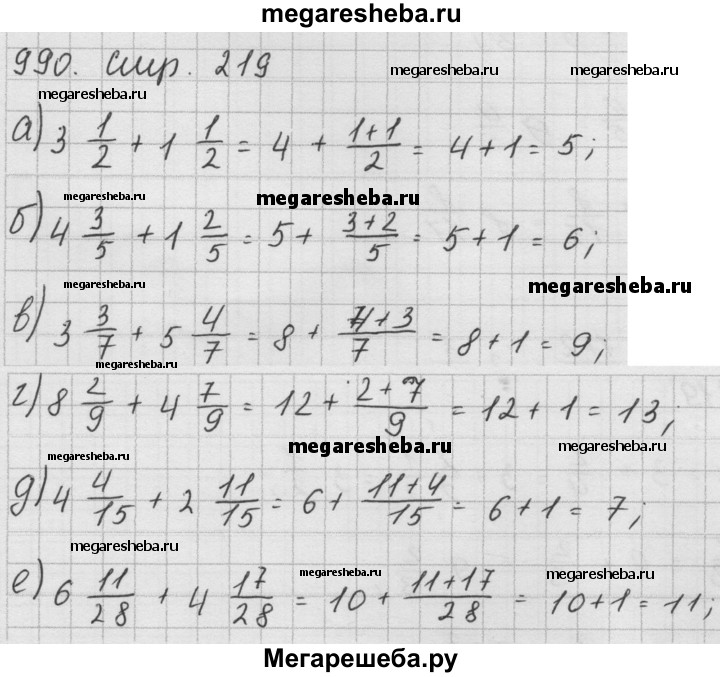 megaresheba.ru
990. стр. 219
megaresheba.ru megaresheba.ru
megaresheba.ru
а) 3 1/2 + 1 1/2 = 4 + (1+1)/2 = 4+1 = 5;
megaresheba.ru megaresheba.ru
б) 4 3/5 + 1 2/5 = 5 + (3+2)/5 = 5+1 = 6;
megaresheba.ru
в) 3 3/7 + 5 4/7 = 8 + (4+3)/7 = 8+1 = 9;
megaresheba.ru
г) 8 2/9 + 4 7/9 = 12 + (2+7)/9 = 12+1 = 13;
megaresheba.ru megaresheba.ru
megaresheba.ru
д) 4 4/15 + 2 11/15 = 6 + (11+4)/15 = 6+1 = 7;
megaresheba.ru megaresheba.ru megaresheba.ru
е) 6 11/28 + 4 17/28 = 10 + (11+17)/28 = 10+1 = 11;
Мегарешеба.ру